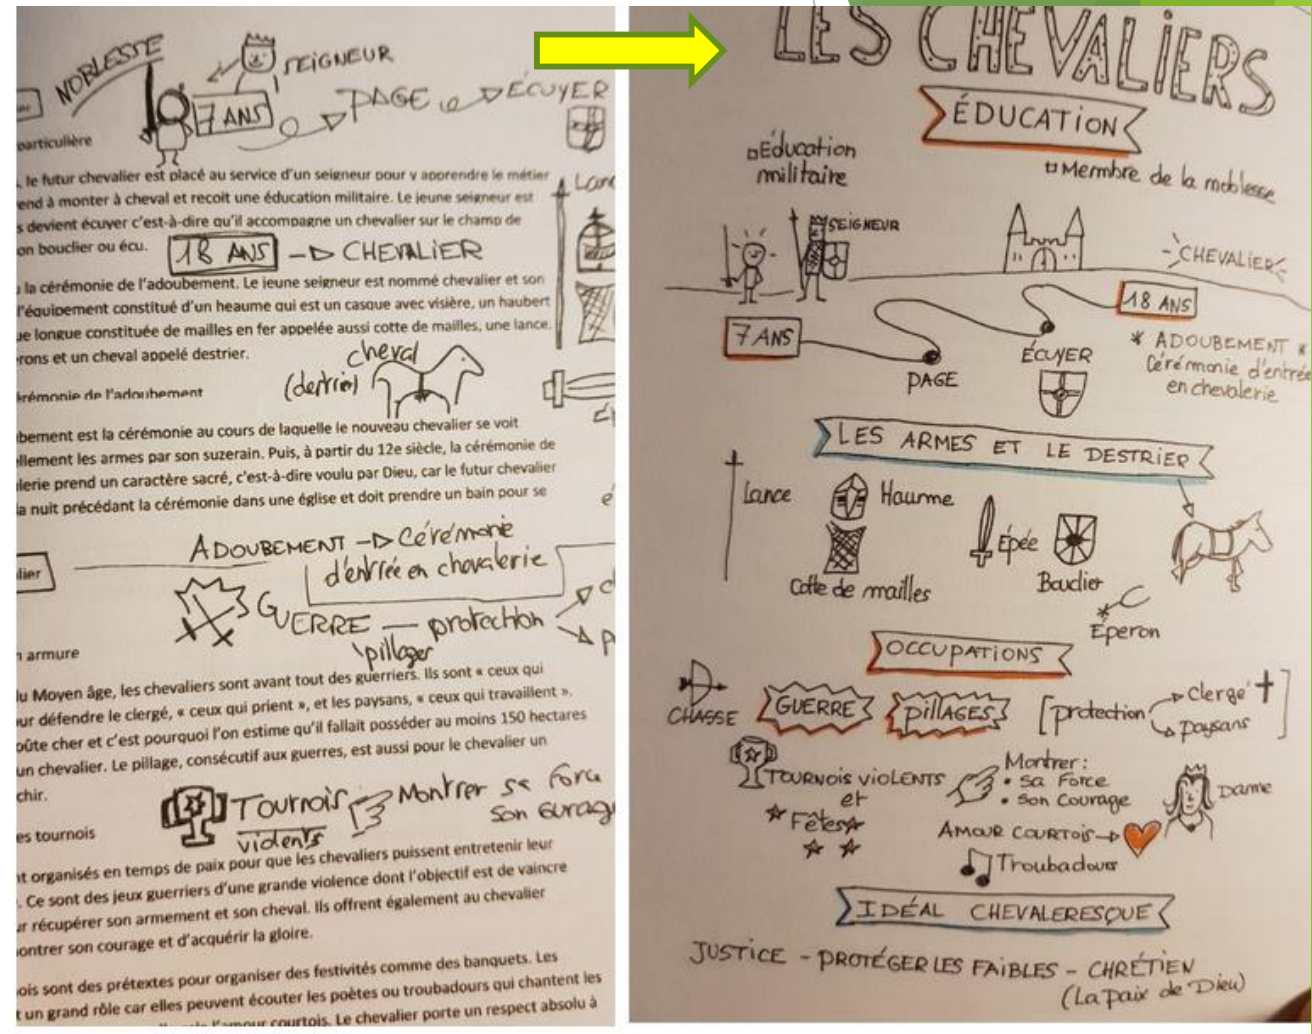 NOBLESSE
SEIGNEUR
7 ANS
PAGE
ÉCUYER
particulière
, le futur chevalier est placé au service d'un seigneur pour y apprendre le métier
end à monter à cheval et recoit une éducation militaire. Le jeune seigneur est
s devient écuyer c'est-à-dire qu'il accompagne un chevalier sur le champ de
on bouclier ou écu.
18 ANS
CHEVALIER
la cérémonie de l'adoubement. Le jeune seigneur est nommé chevalier et son
l'équipement constitué d'un heaume qui est un casque avec visière, un haubert
ue longue constituée de mailles en fer appelée aussi cotte de mailles, une lance,
rons et un cheval appelé destrier.
cheval
(destrier)
érémonie de l'adoubement
bement est la cérémonie au cours de laquelle le nouveau chevalier se voit
ellement les armes par son suzerain. Puis, à partir du 12e siècle, la cérémonie de
alerie prend un caractère sacré, c'est-à-dire voulu par Dieu, car le futur chevalier
la nuit précédant la cérémonie dans une église et doit prendre un bain pour se
ADOUBEMENT Cérémonie
d'entrée en chevalerie
lier
GUERRE — protection
pillager
n armure
lu Moyen âge, les chevaliers sont avant tout des guerriers. Ils sont « ceux qui
ur défendre le clergé, « ceux qui prient », et les paysans, « ceux qui travaillent ».
oûte cher et c'est pourquoi l'on estime qu'il fallait posséder au moins 150 hectares
un chevalier. Le pillage, consécutif aux guerres, est aussi pour le chevalier un
chir.
TOURNOIS
violents
Montrer sa force
son courag
es tournois
nt organisés en temps de paix pour que les chevaliers puissent entretenir leur
. Ce sont des jeux guerriers d'une grande violence dont l'objectif est de vaincre
ur récupérer son armement et son cheval. Ils offrent également au chevalier
ontrer son courage et d'acquérir la gloire.
ois sont des prétextes pour organiser des festivités comme des banquets. Les
t un grand rôle car elles peuvent écouter les poètes ou troubadours qui chantent les
l'amour courtois. Le chevalier porte un respect absolu à
LES CHEVALIERS
ÉDUCATION
Éducation
militaire
Membre de la noblesse
SEIGNEUR
CHEVALIER
18 ANS
7 ANS
PAGE
ÉCUYER
* ADOUBEMENT *
Cérémonie d'entrée
en chevalerie
LES ARMES ET LE DESTRIER
Lance
Haume
Cotte de mailles
Épée
Bouclier
Éperon
OCCUPATIONS
CHASSE
GUERRE
PILLAGES
[protection
clergé
paysans
]
TOURNOIS VIOLENTS
et
Fêtes
Montrer :
• sa Force
• son Courage
Dame
AMOUR COURTOIS
Troubadour
IDÉAL CHEVALERESQUE
JUSTICE - PROTÉGER LES FAIBLES - CHRÉTIEN
(La paix de Dieu)